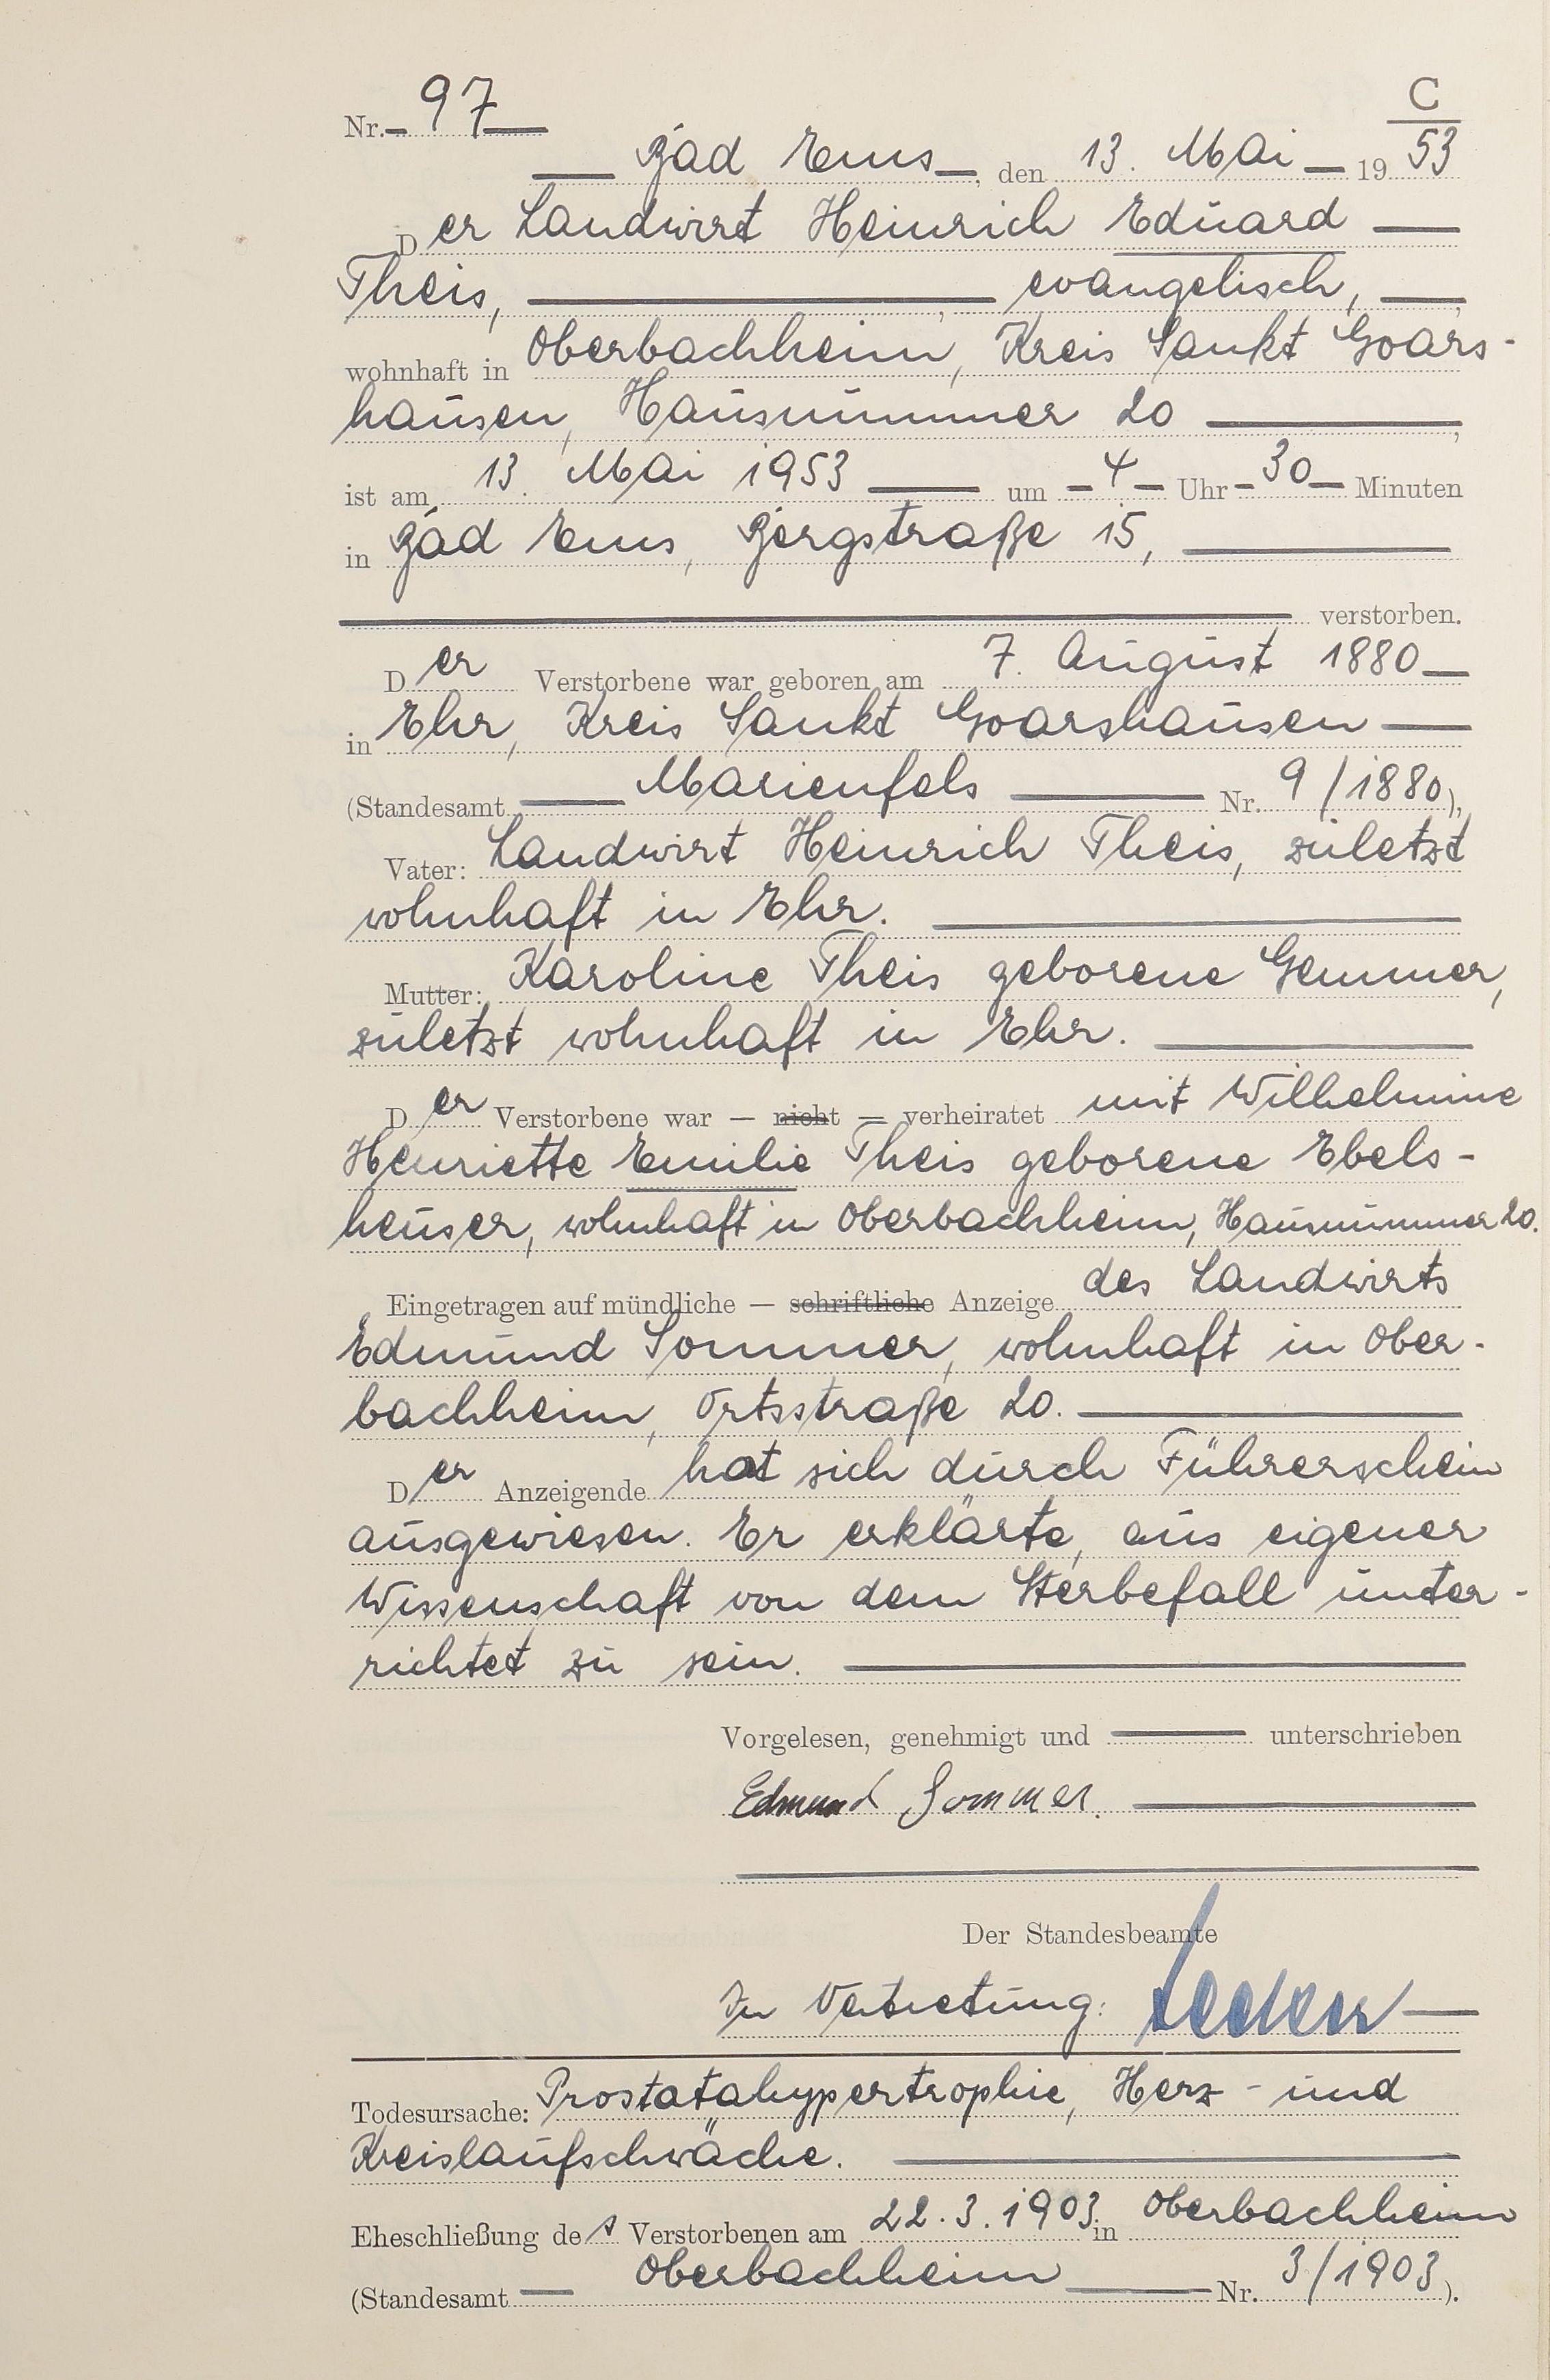 C
Nr. 97
Bad Ems, den 13. Mai 19 53
Der Landwirt Heinrich Eduard
Theis, evangelisch,
wohnhaft in Oberbachheim, Kreis Sankt Goars-
hausen, Hausnummer 20,
ist am 13. Mai 1953 um 4 Uhr 30 Minuten
in Bad Ems, Bergstraße 15,
verstorben.
Der Verstorbene war geboren am 7. August 1880
in Ehr, Kreis Sankt Goarshausen
(Standesamt Marienfels Nr. 9/1880),
Vater: Landwirt Heinrich Theis, zuletzt
wohnhaft in Ehr.
Mutter: Karoline Theis geborene Gemmer,
zuletzt wohnhaft in Ehr.
Der Verstorbene war — nicht — verheiratet mit Wilhelmine
Henriette Emilie Theis geborene Ebels-
heuser, wohnhaft in Oberbachheim, Hausnummer 20.
Eingetragen auf mündliche — schriftliche Anzeige des Landwirts
Edmund Sommer, wohnhaft in Ober-
bachheim, Ortsstraße 20.
Der Anzeigende hat sich durch Führerschein
ausgewiesen. Er erklärte, aus eigener
Wissenschaft von dem Sterbefall unter-
richtet zu sein.
Vorgelesen, genehmigt und unterschrieben
Edmund Sommer.
Der Standesbeamte
In Vertretung:
Todesursache: Prostatahypertrophie, Herz- und
Kreislaufschwäche.
Eheschließung des Verstorbenen am 22.3.1903. in Oberbachheim
(Standesamt Oberbachheim Nr. 3/1903).